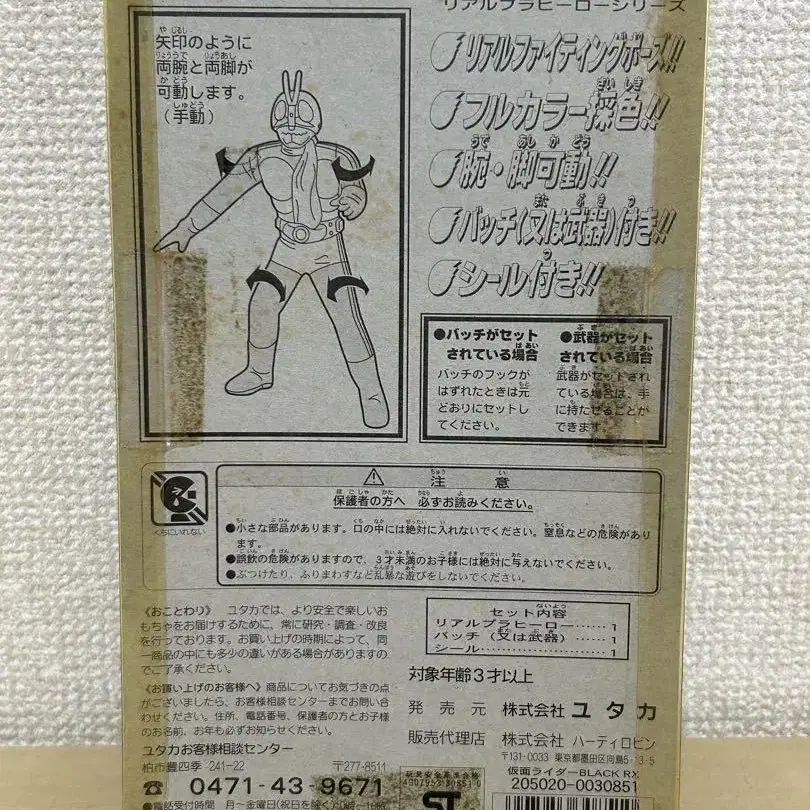 リアルプラヒーローシリーズ
矢印のように
両腕と両脚が
可動します。
(手動)
リアルファイティングポーズ!!
フルカラー採色!!
腕・脚可動!!
バッチ(又は武器)付き!!
シール付き!!
●バッチがセット
されている場合
バッチのフックが
はずれたときは元
どおりにセットし
てください。
●武器がセット
されている場合
武器がセットされ
ている場合は、手
に持たせることが
できます。
くちにいれない
⚠ 注意
保護者の方へ 必ずお読みください。
●小さな部品があります。口の中には絶対に入れないでください。窒息などの危険があり
ます。
●誤飲の危険がありますので、3才未満のお子様には絶対に与えないでください。
●ぶつけたり、ふりまわすなど乱暴な遊びをしないでください。
《おことわり》 ユタカでは、より安全で楽しいお
もちゃをお届けするために、常に研究・調査・改良
を行っております。お買い上げの時期によって、同
一商品の中にも多少の違いがある場合がありますの
でご了承ください。
《お買い上げのお客様へ》商品についてお気づきの点
がございましたら、お客様相談センターまでお問い合
わせください。住所、電話番号、保護者の方とお子様
のお名前、お年も必ずお知らせください。
ユタカお客様相談センター
柏市豊四季 241-22 〒277-8511
☎ 0471-43-9671
電話受付時間 月〜金曜日(祝日を除く)10時〜16時
セット内容
リアルプラヒーロー……1
バッチ(又は武器)……1
シール……1
対象年齢3才以上
発売元 株式会社 ユタカ
販売代理店 株式会社 ハーティロビン
〒131-0033 東京都墨田区向島5-13-5
仮面ライダーBLACK RX
205020-0030851
玩具安全基準合格
ST